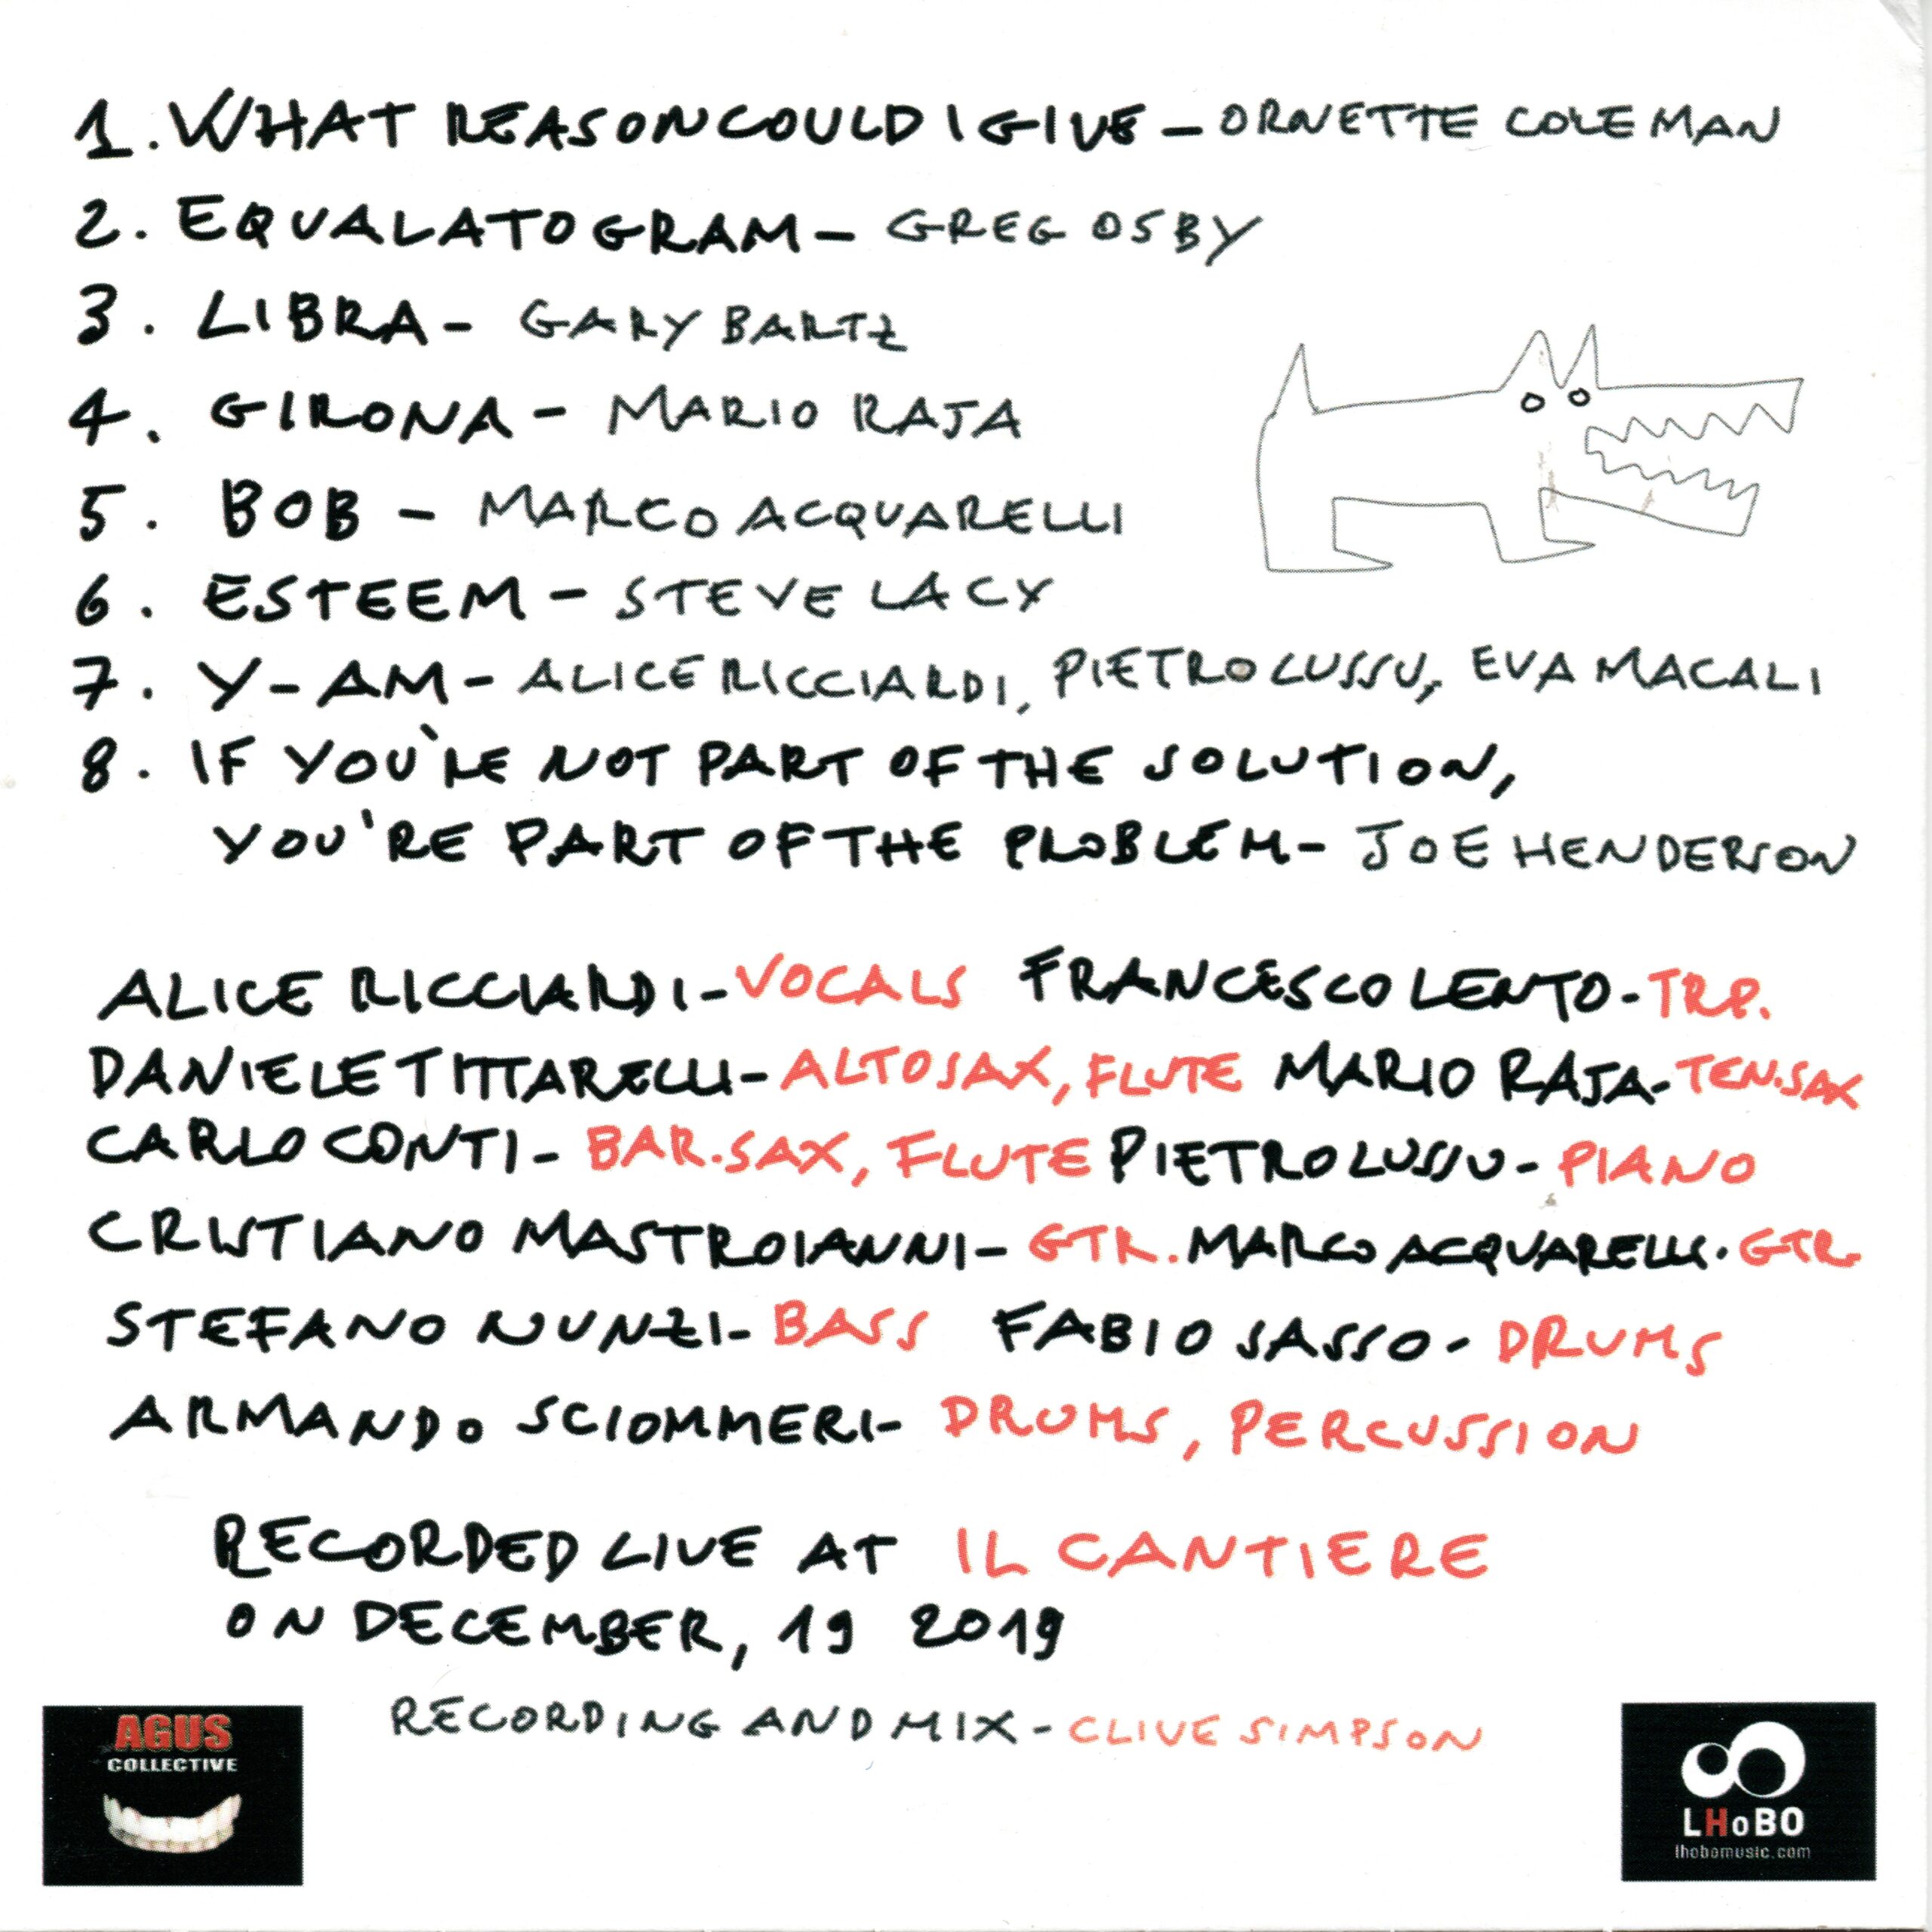 1. WHAT REASON COULD I GIVE - ORNETTE COLEMAN
2. EQUALATOGRAM - GREG OSBY
3. LIBRA - GARY BARTZ
4. GIRONA - MARIO RAJA
5. BOB - MARCO ACQUARELLI
6. ESTEEM - STEVE LACY
7. Y-AM - ALICE RICCIARDI, PIETRO LUSSU, EVA MACALI
8. IF YOU'RE NOT PART OF THE SOLUTION,
YOU'RE PART OF THE PROBLEM - JOE HENDERSON
ALICE RICCIARDI - VOCALS FRANCESCO LENTO - TRP.
DANIELE TITTARELLI - ALTO SAX, FLUTE MARIO RAJA - TEN. SAX
CARLO CONTI - BAR. SAX, FLUTE PIETRO LUSSU - PIANO
CRISTIANO MASTROIANNI - GTR. MARCO ACQUARELLI. GTR.
STEFANO NUNZI - BASS FABIO SASSO - DRUMS
ARMANDO SCIOMMERI - DRUMS, PERCUSSION
RECORDED LIVE AT IL CANTIERE
ON DECEMBER, 19 2019
RECORDING AND MIX - CLIVE SIMPSON
AGUS
COLLECTIVE
LHoBO
lhobomusic.com